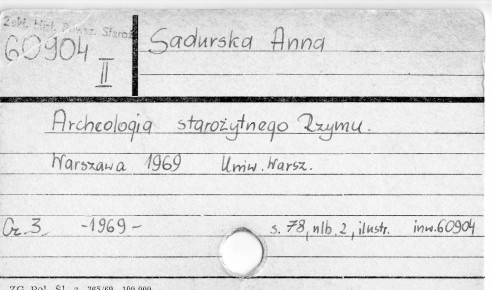 Zakł. Hist. Powsz. Staroż
60904
II
Sadurska Anna
Archeologia starożytnego Rzymu.
Warszawa 1969 Uniw. Warsz.
Cz. 3. -1969- s. 78, nlb. 2, ilustr. inw. 60904
ZG Pol. Śl. z. 765/69 100.000